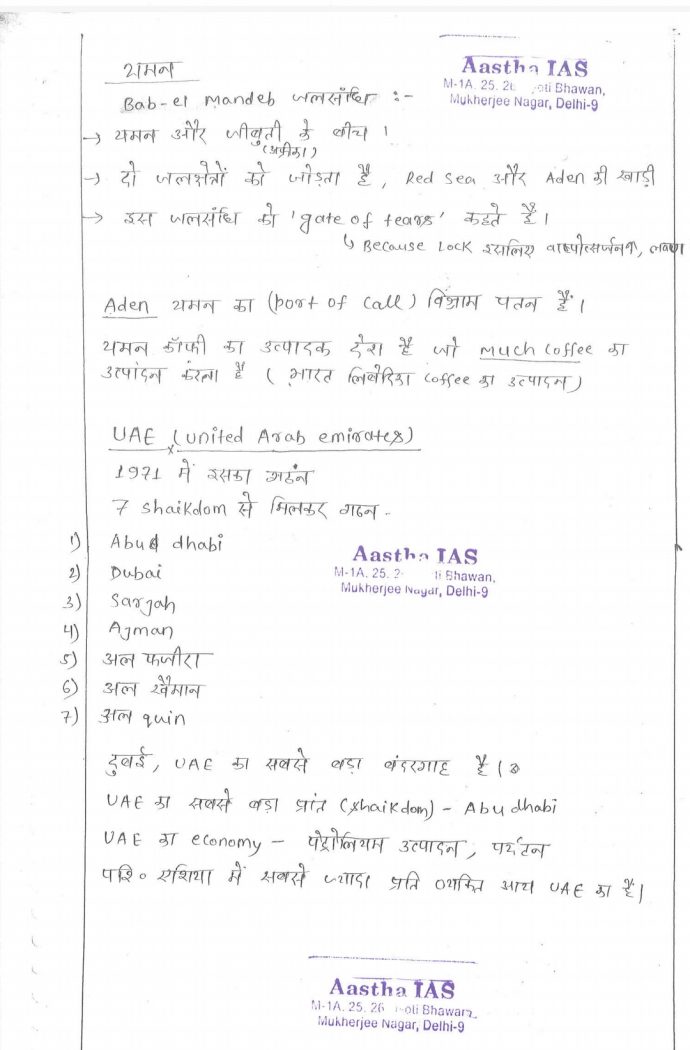 यमन
Aastha IAS
M-1A. 25. 26 Bhawan,
Mukherjee Nagar, Delhi-9
Bab-el Mandeb जलसंधि :-
→ यमन और जीबुती के बीच ।
(अफ्रीका)
→ दो जलक्षेत्रों को जोड़ता है, Red Sea और Aden की खाड़ी
→ इस जलसंधि को 'gate of tears' कहते है।
↳ Because Lock इसलिए
Aden यमन का (port of call) विश्राम पतन है।
यमन कॉफी का उत्पादक देश है जो Much Coffee का
उत्पादन करता है ( भारत coffee का उत्पादन)
UAE (united Arab emirates)
1971 में इसका गठन
7 shaikdom से मिलकर गठन -
1) Abu dhabi
Aastha IAS
M-1A. 25. Bhawan,
Mukherjee Nagar, Delhi-9
2) Dubai
3) Sarjah
4) Ajman
5) अल फजीरा
6) अल खैमान
7) अल quin
दुबई, UAE का सबसे बड़ा बंदरगाह है।
UAE का सबसे बड़ा प्रांत (shaikdom) - Abu dhabi
UAE का economy - पेट्रोलियम उत्पादन, पर्यटन
पश्चि० एशिया में सबसे ज्यादा प्रति व्यक्ति आय UAE का है।
Aastha IAS
M-1A. 25. 26 Bhawan,
Mukherjee Nagar, Delhi-9